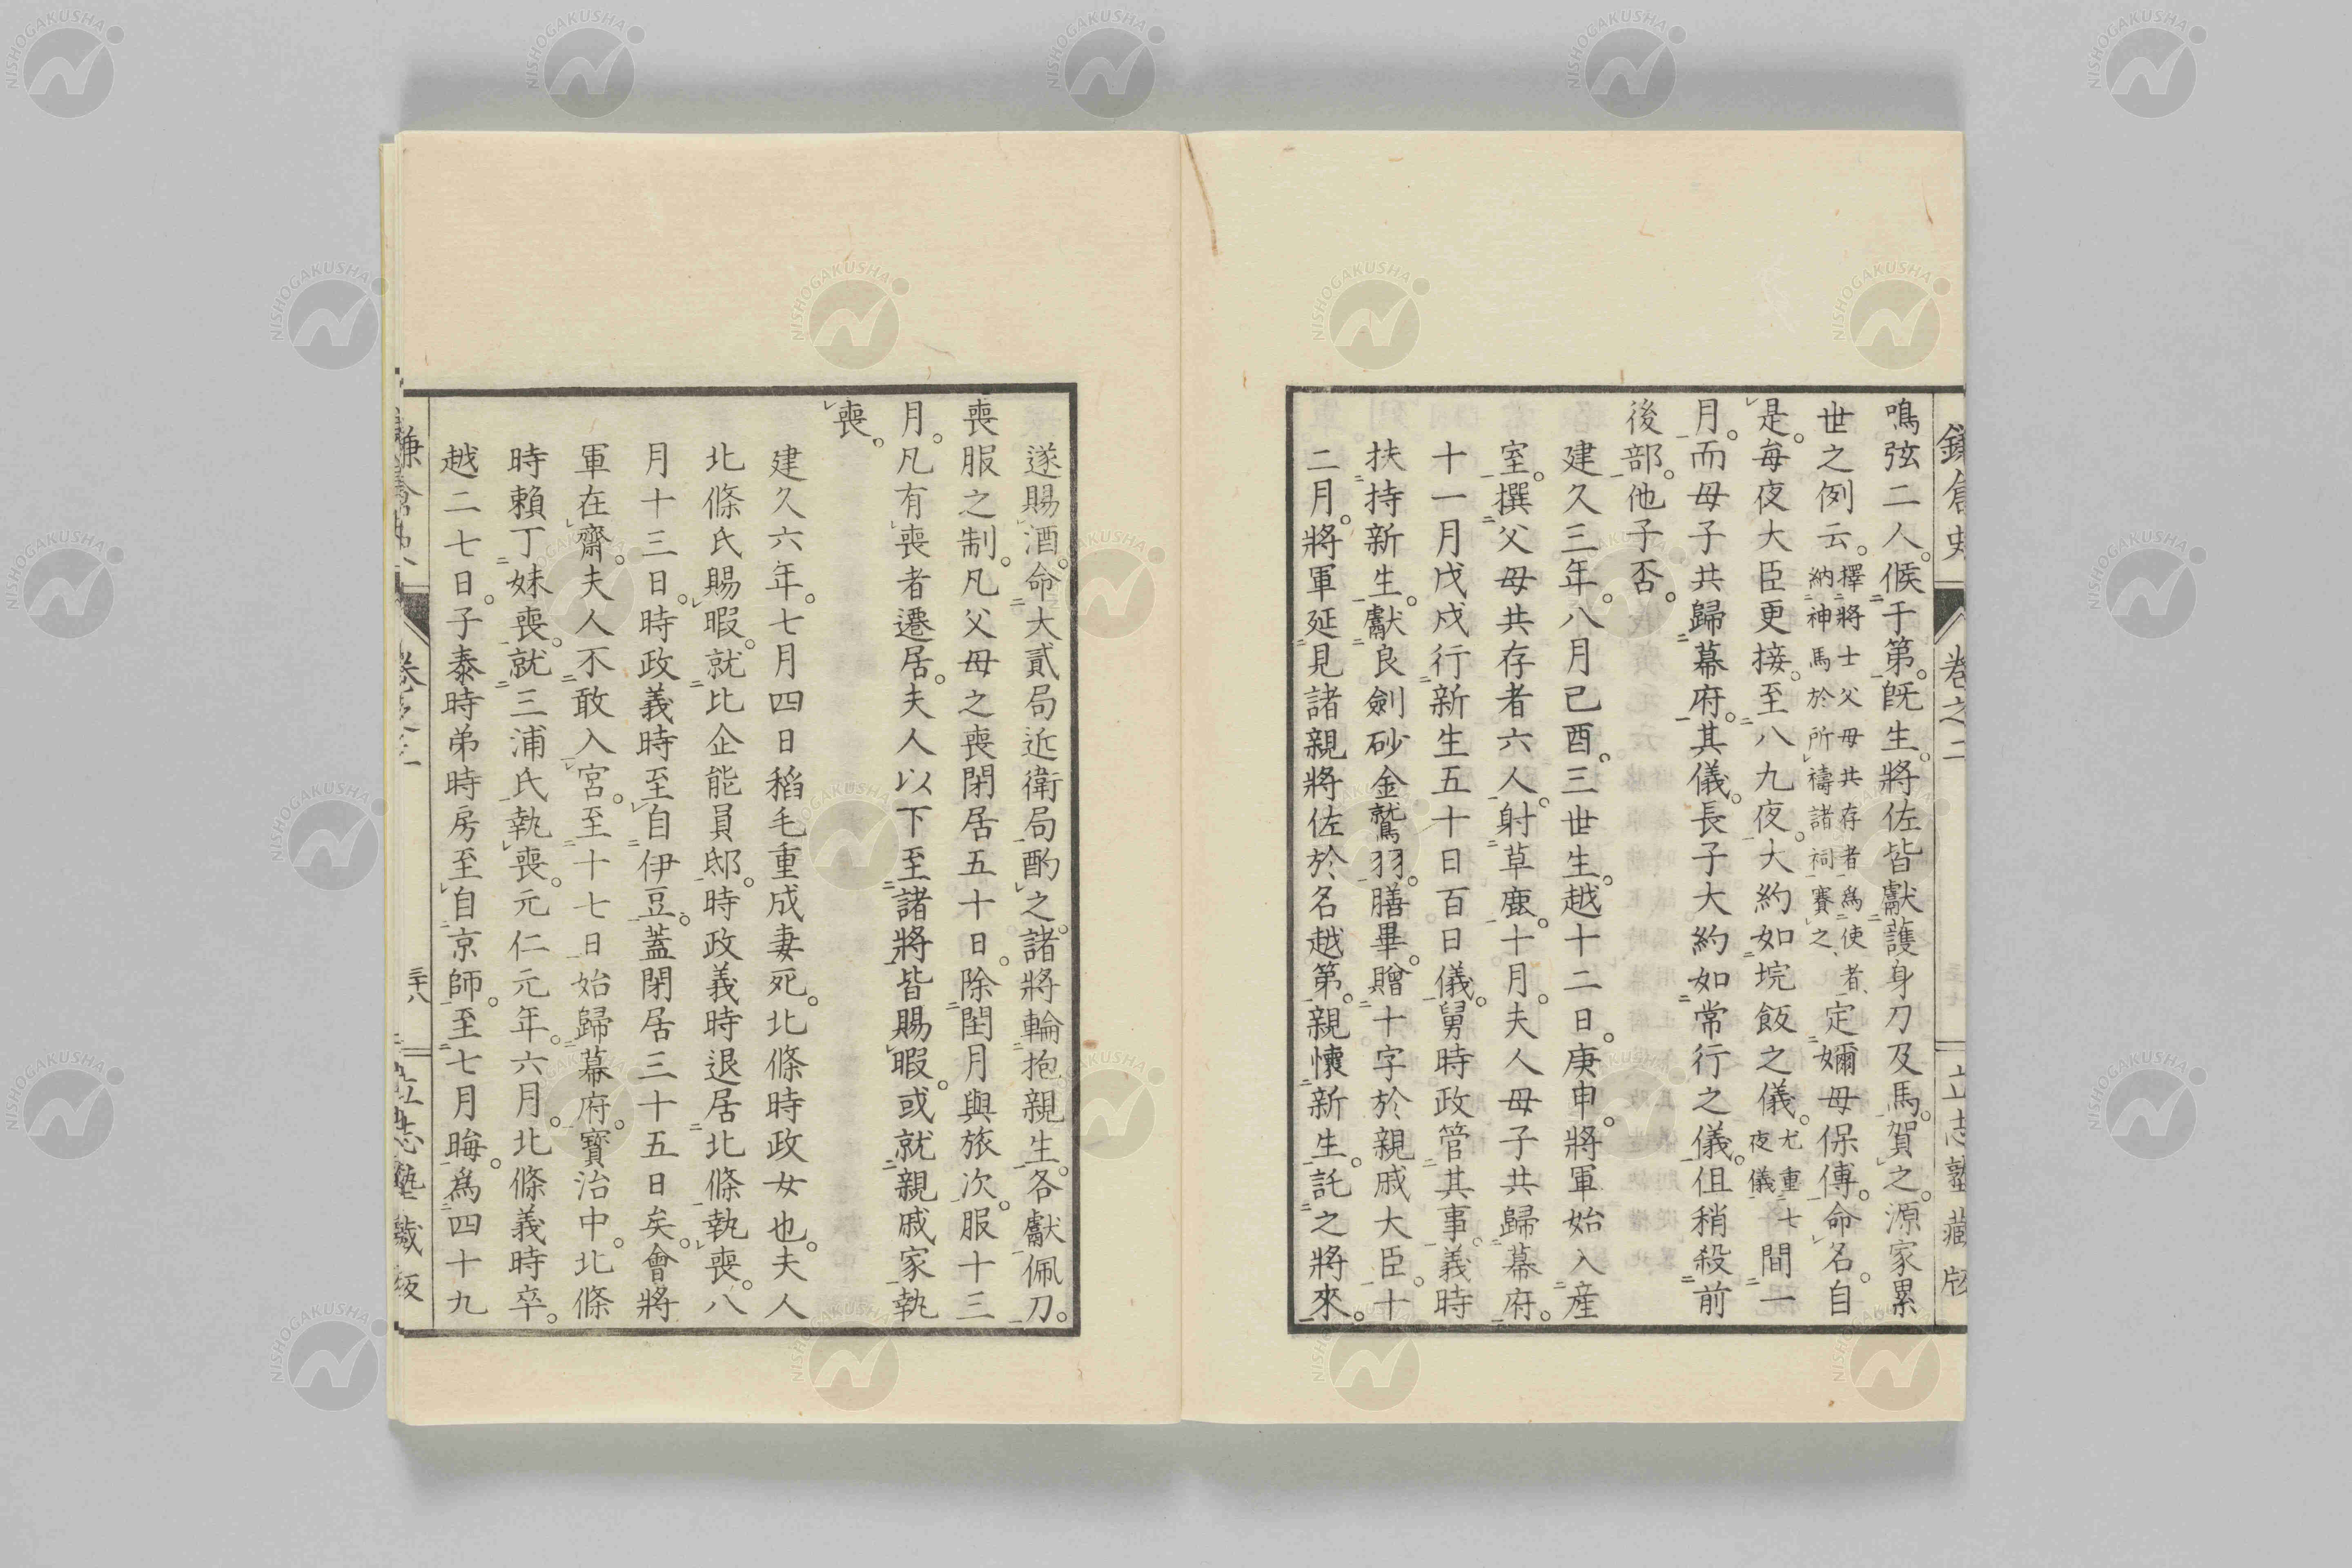 鎌倉史 卷之二 立志塾藏版
鳴弦二人。候于第。旣生。將佐皆獻護身刀及馬。賀之。源家累
世之例云。擇將士父母共存者爲使者、納神馬於所禱諸祠賽之、定嬭母保傅。命名。自
是。每夜大臣更接。至八九夜。大約如垸飯之儀。尤重七夜儀間一
月。而母子共歸幕府。其儀。長子大約如常行之儀。但稍殺前
後部。他子否。
建久三年。八月己酉。三世生。越十二日。庚申。將軍始入產
室。撰父母共存者六人。射草鹿。十月。夫人母子共歸幕府。
十一月戊戌行新生五十日百日儀。舅時政管其事。義時
扶持新生。獻良劍砂金鷲羽。膳畢。贈十字於親戚大臣。十
二月。將軍延見諸親將佐於名越第。親懷新生。託之將來。
遂賜酒。命大貳局近衛局酌之。諸將輪抱親生。各獻佩刀。
喪服之制。凡父母之喪閉居五十日。除閏月與旅次。服十三
月。凡有喪者遷居。夫人以下至諸將皆賜暇。或就親戚家執
喪。
建久六年。七月四日稻毛重成妻死。北條時政女也。夫人
北條氏賜暇。就比企能員邸。時政義時退居北條執喪。八
月十三日。時政義時至自伊豆。蓋閉居三十五日矣。會將
軍在齋。夫人不敢入宮。至十七日始歸幕府。寳治中。北條
時賴丁妹喪。就三浦氏執喪。元仁元年。六月。北條義時卒。
越二七日。子泰時弟時房至自京師。至七月晦。爲四十九
鎌倉史 卷之二 三十八 立志塾藏版
NISHOGAKUSHA